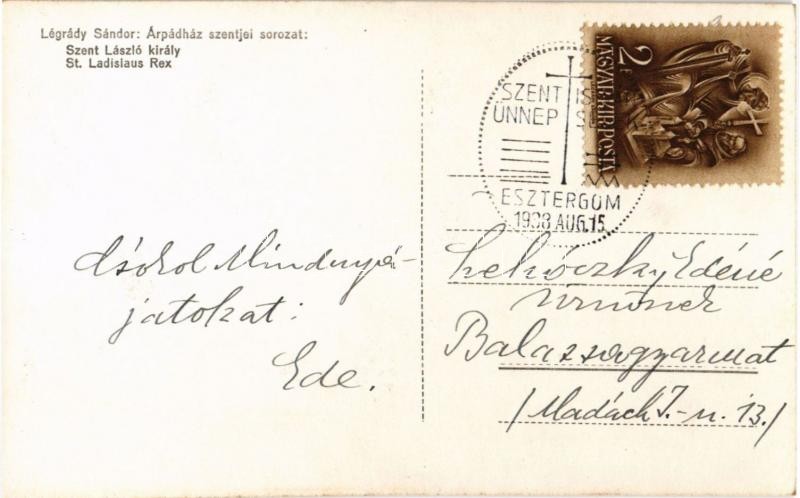 Légrády Sándor: Árpádház szentjei sorozat:
Szent László király
St. Ladislaus Rex
2
MAGYAR·KIR·POSTA
SZENT IS
ÜNNEP
ESZTERGOM
1938 AUG. 15
Csókol Mindnyá-
jatokat:
Ede.
Lehóczky Edéné
úrnőnek
Balassagyarmat
/Madách I.-u. 13./